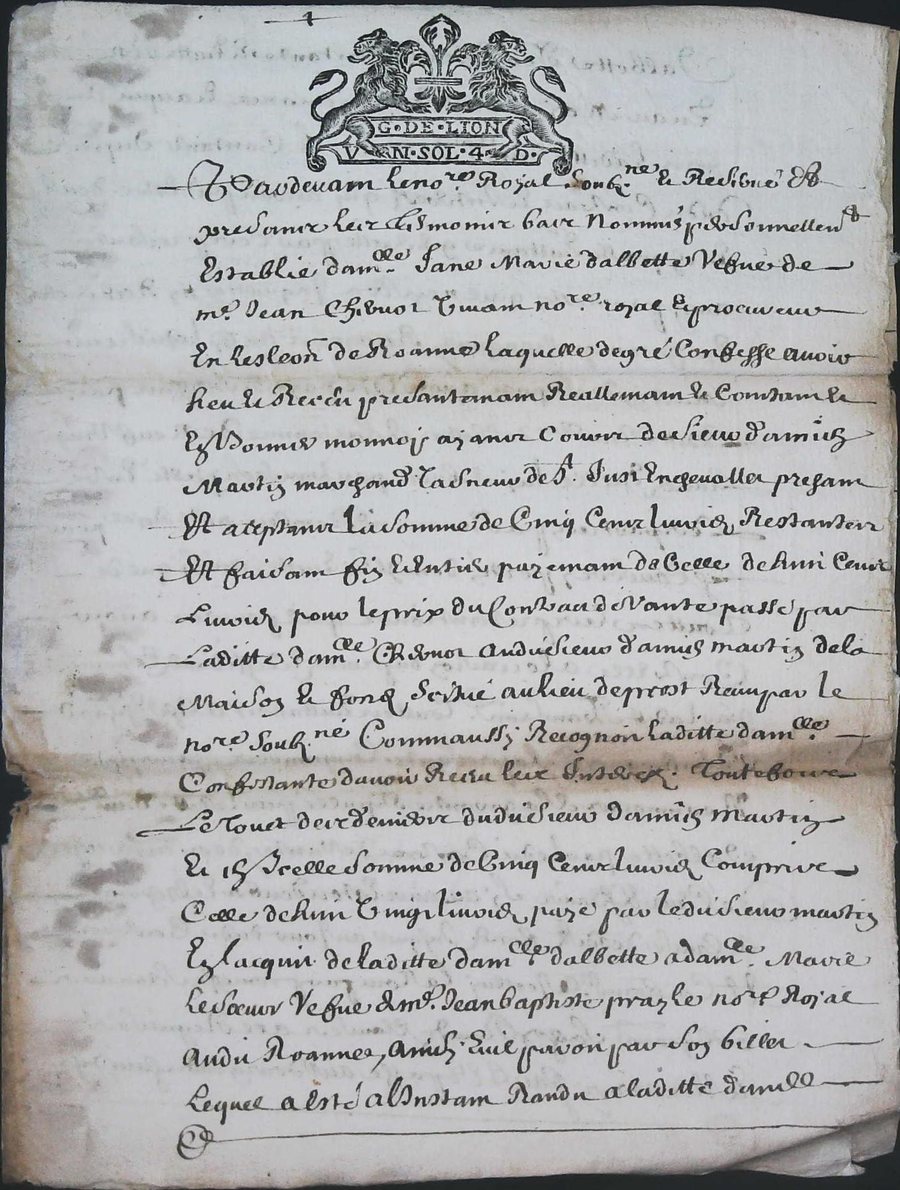 G·DE·LION
VN·SOL·4·D·
Pardevam le nore Royal soubzne & Resivé &
presance les tesmoins bas nommes personnellemt
Establie damlle Jane Marie dalbette Vefue de
me Jean Chevnot vivam nore royal & procureur
En lesleon de Roanne laquelle de gré Confesse avoir
heu & Recеu presantemam Reallemam & Comtam &
En bonne monnoij ajanr Cours de sieur damien
Martin marchand de St. Just En chevallet presam
Et aceptanr la somme de Cinq Cenr livres Restanter
Et faisam fin & Entier payemam de Celle de huit Cenr
Livres pour le prix du Contract de Vante passé par
Laditte damlle Chevnot audit sieur damien martin de la
Maison & fond scitué au lieu de prost Receu par le
nore soubzné Comm aussy Recognoit laditte damlle
Confessante davoir Receu les Interex.
Le Tout des deniers dudit sieur damien Martin
Et En Icelle somme de Cinq Cenr livres Comprise
Celle de huit Vingt livres paye par ledit sieur martin
En lacquit de laditte damlle dalbette a damlle Marie
Vefue de me. Jean baptiste nore Royal
Audit Roanne, par son billet
Lequel a Esté a LInstam Randu a laditte damlle